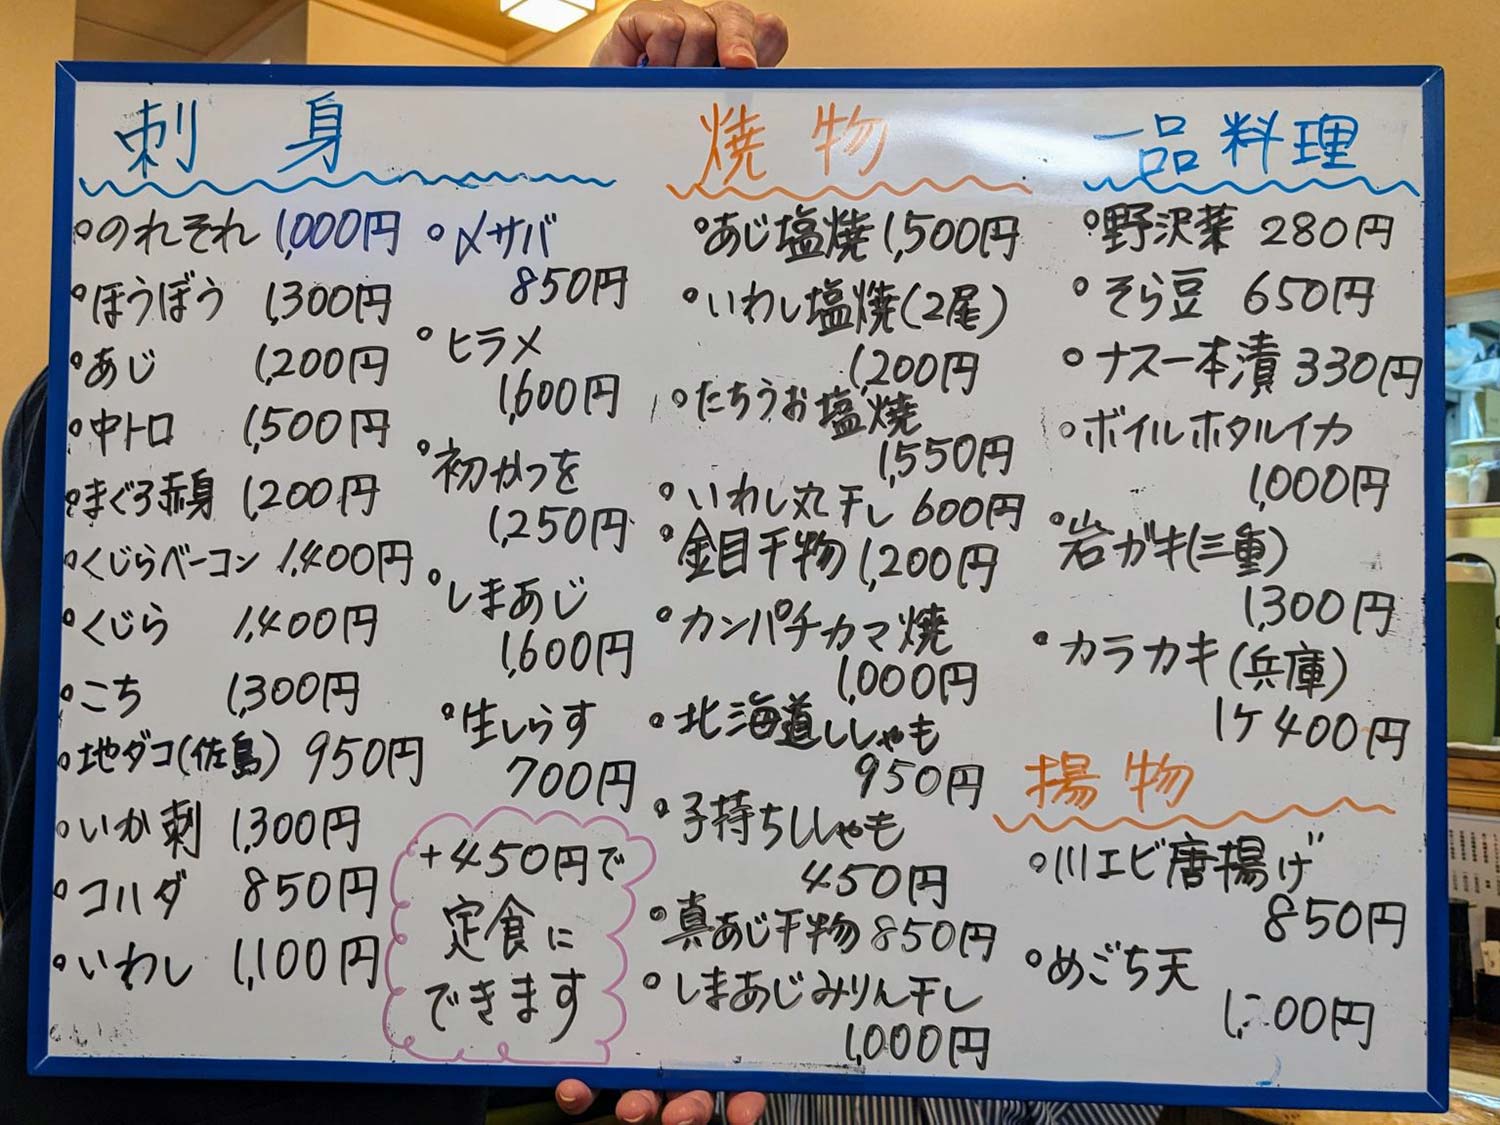 刺身
・のれそれ 1,000円
・ほうぼう 1,300円
・あじ 1,200円
・中トロ 1,500円
・まぐろ赤身 1,200円
・くじらベーコン 1,400円
・くじら 1,400円
・こち 1,300円
・地ダコ(佐島) 950円
・いか刺 1,300円
・コハダ 850円
・いわし 1,100円
・〆サバ
850円
・ヒラメ
1,600円
・初かつを
1,250円
・しまあじ
1,600円
・生しらす
700円
+450円で
定食に
できます
焼物
・あじ塩焼 1,500円
・いわし塩焼(2尾)
1,200円
・たちうお塩焼
1,550円
・いわし丸干し 600円
・金目干物 1,200円
・カンパチカマ焼
1,000円
・北海道ししゃも
950円
・子持ちししゃも
450円
・真あじ干物 850円
・しまあじみりん干し
1,000円
一品料理
・野沢菜 280円
・そら豆 650円
・ナス一本漬 330円
・ボイルホタルイカ
1,000円
・岩ガキ(三重)
1,300円
・カラカキ(兵庫)
1ケ 400円
揚物
・川エビ唐揚げ
850円
・めごち天